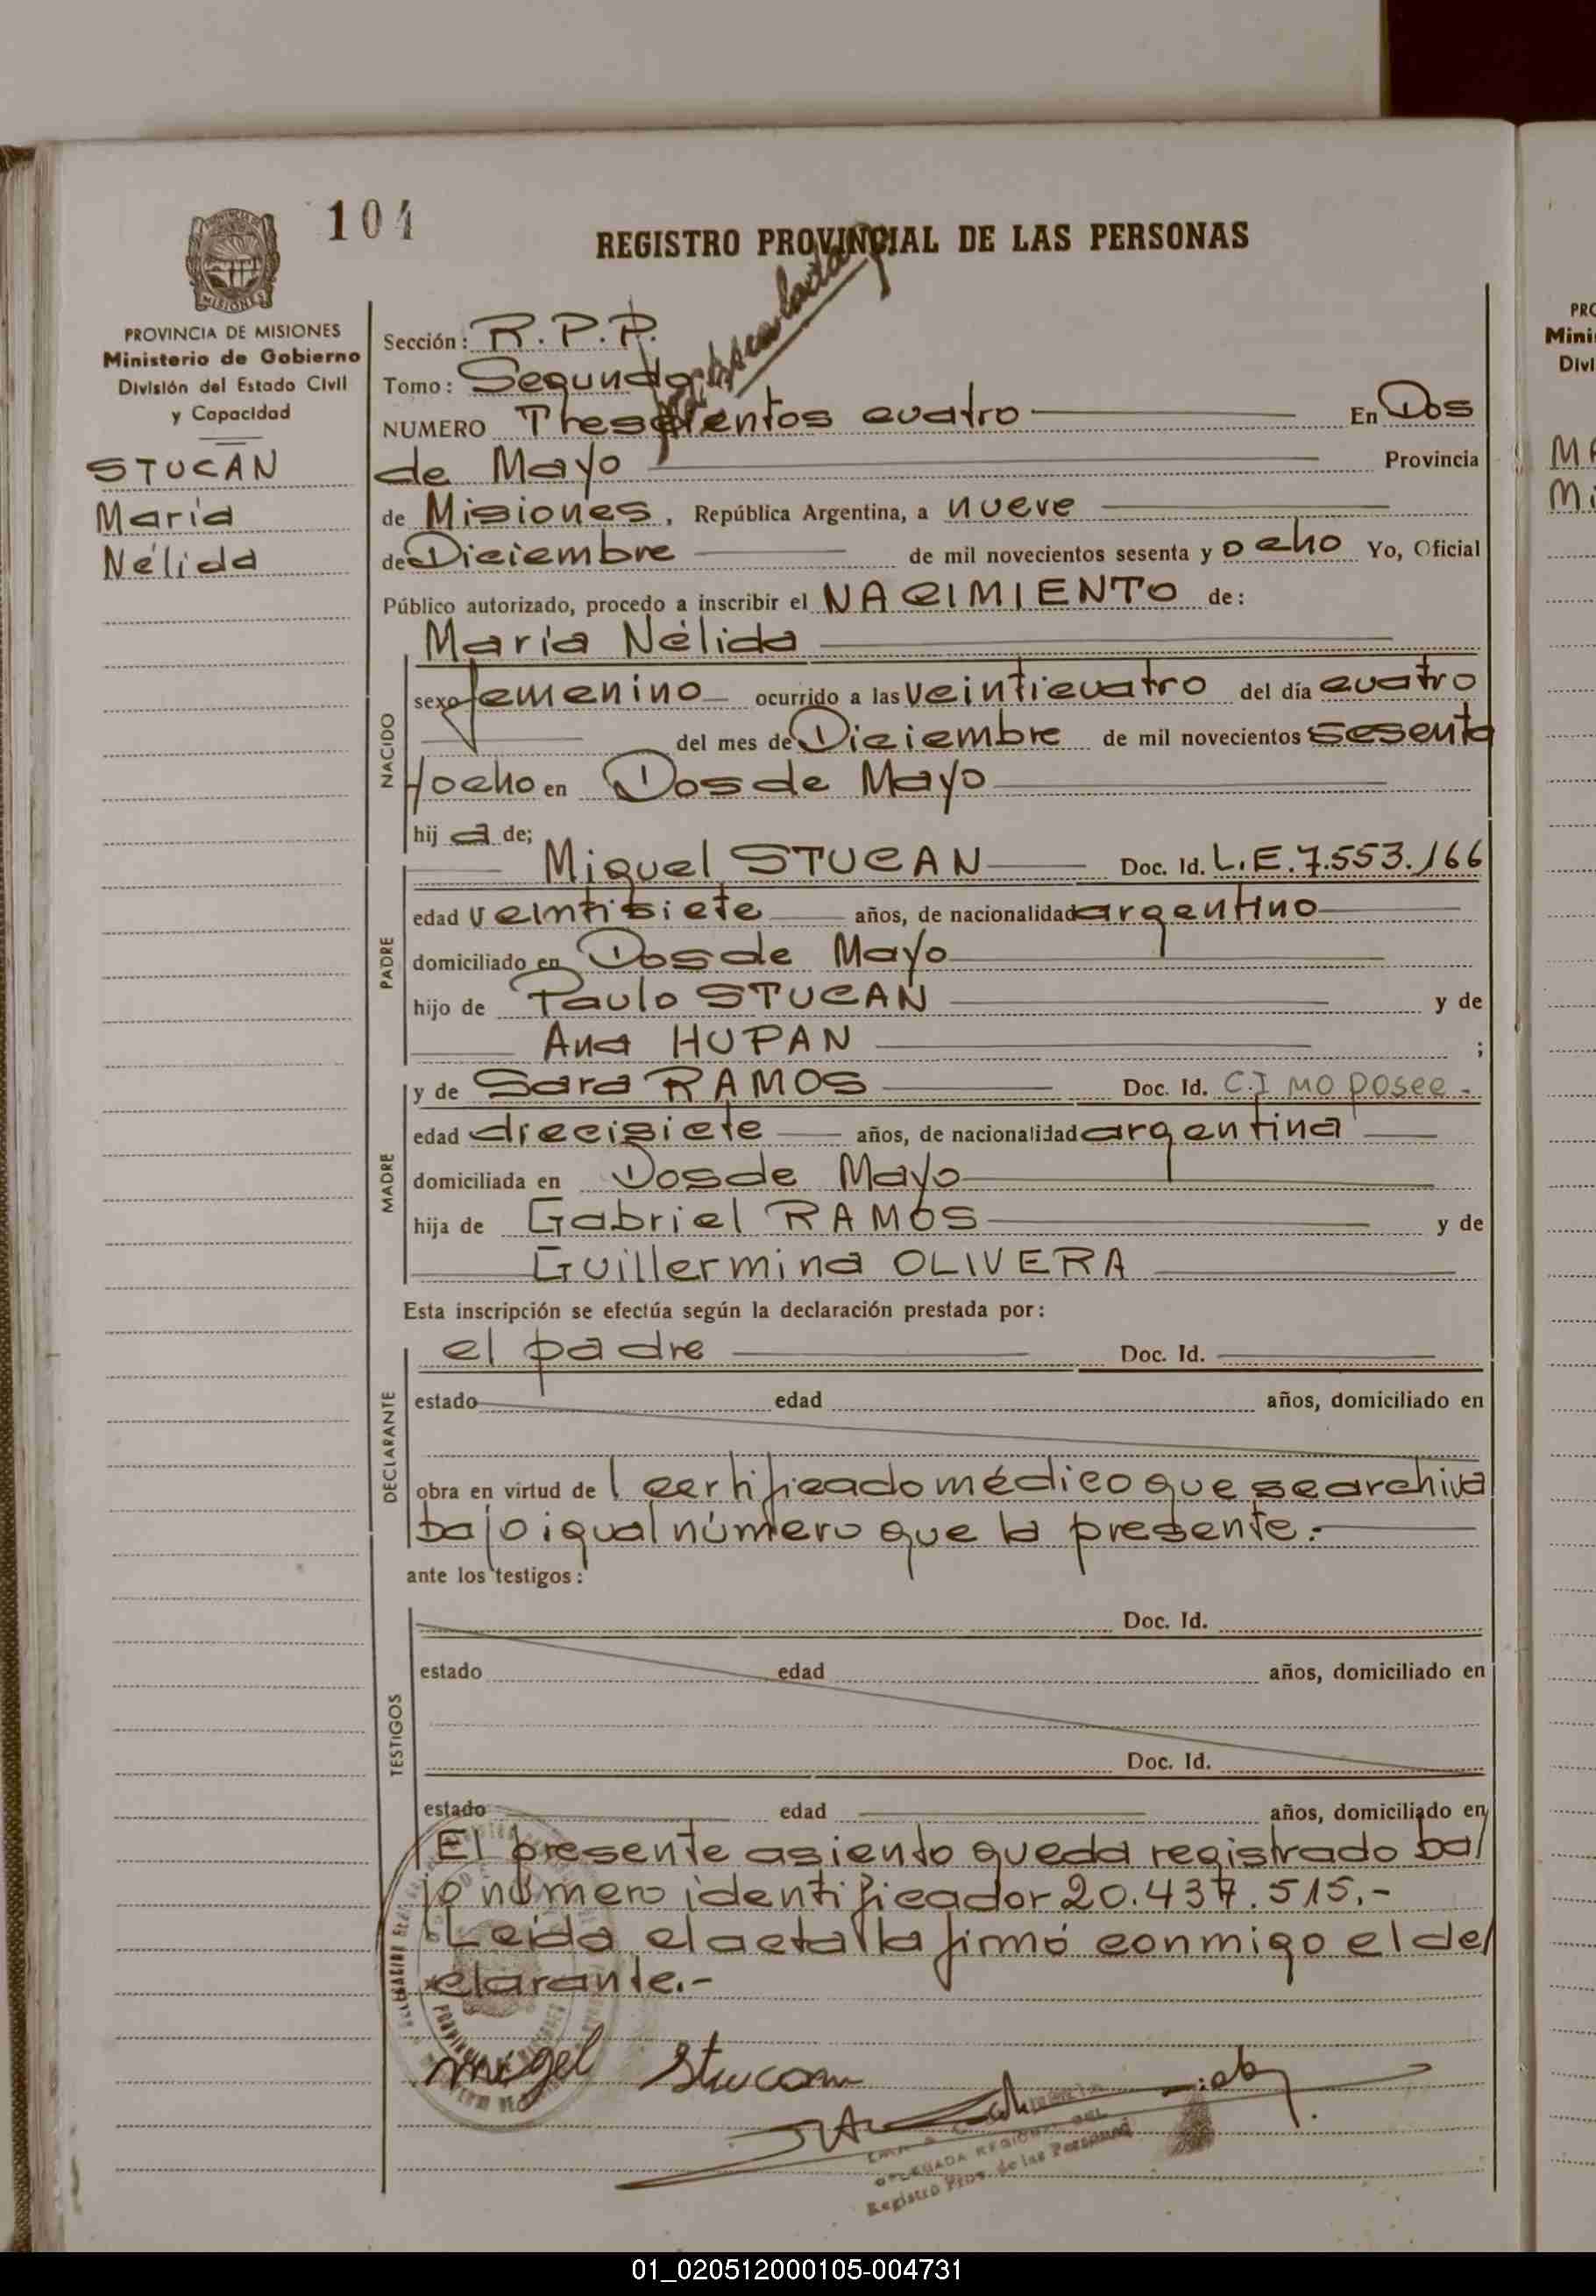 104
REGISTRO PROVINCIAL DE LAS PERSONAS
MISIONES
PROVINCIA DE MISIONES
Ministerio de Gobierno
División del Estado Civil
y Capacidad
STUCAN
María
Nélida
Sección: R.P.P.
Tomo: Segundo
NUMERO Trescientos cuatro En Dos
de Mayo Provincia
de Misiones, República Argentina, a nueve
de Diciembre de mil novecientos sesenta y ocho Yo, Oficial
Público autorizado, procedo a inscribir el NACIMIENTO de:
NACIDO
María Nélida
sexo femenino ocurrido a las veinticuatro del día cuatro
del mes de Diciembre de mil novecientos sesenta
y ocho en Dos de Mayo
hij a de;
PADRE
Miguel STUCAN Doc. Id. L.E.7.553.166
edad veintisiete años, de nacionalidad argentino
domiciliado en Dos de Mayo
hijo de Paulo STUCAN y de
Ana HUPAN ;
MADRE
y de Sara RAMOS Doc. Id. C.I no posee -
edad diecisiete años, de nacionalidad argentina
domiciliada en Dos de Mayo
hija de Gabriel RAMOS y de
Guillermina OLIVERA
Esta inscripción se efectúa según la declaración prestada por:
DECLARANTE
el padre Doc. Id.
estado edad años, domiciliado en
obra en virtud de l certificado médico que se archiva
bajo igual número que la presente.-
ante los testigos:
TESTIGOS
Doc. Id.
estado edad años, domiciliado en
Doc. Id.
estado edad años, domiciliado en
El presente asiento queda registrado ba/
jo número identificador 20.437.515.-
Leída el acta la firmó conmigo el de/
clarante.-
migel Stucan
DELEGADA REGIONAL DEL
Registro Prov. de las Personas
01_020512000105-004731